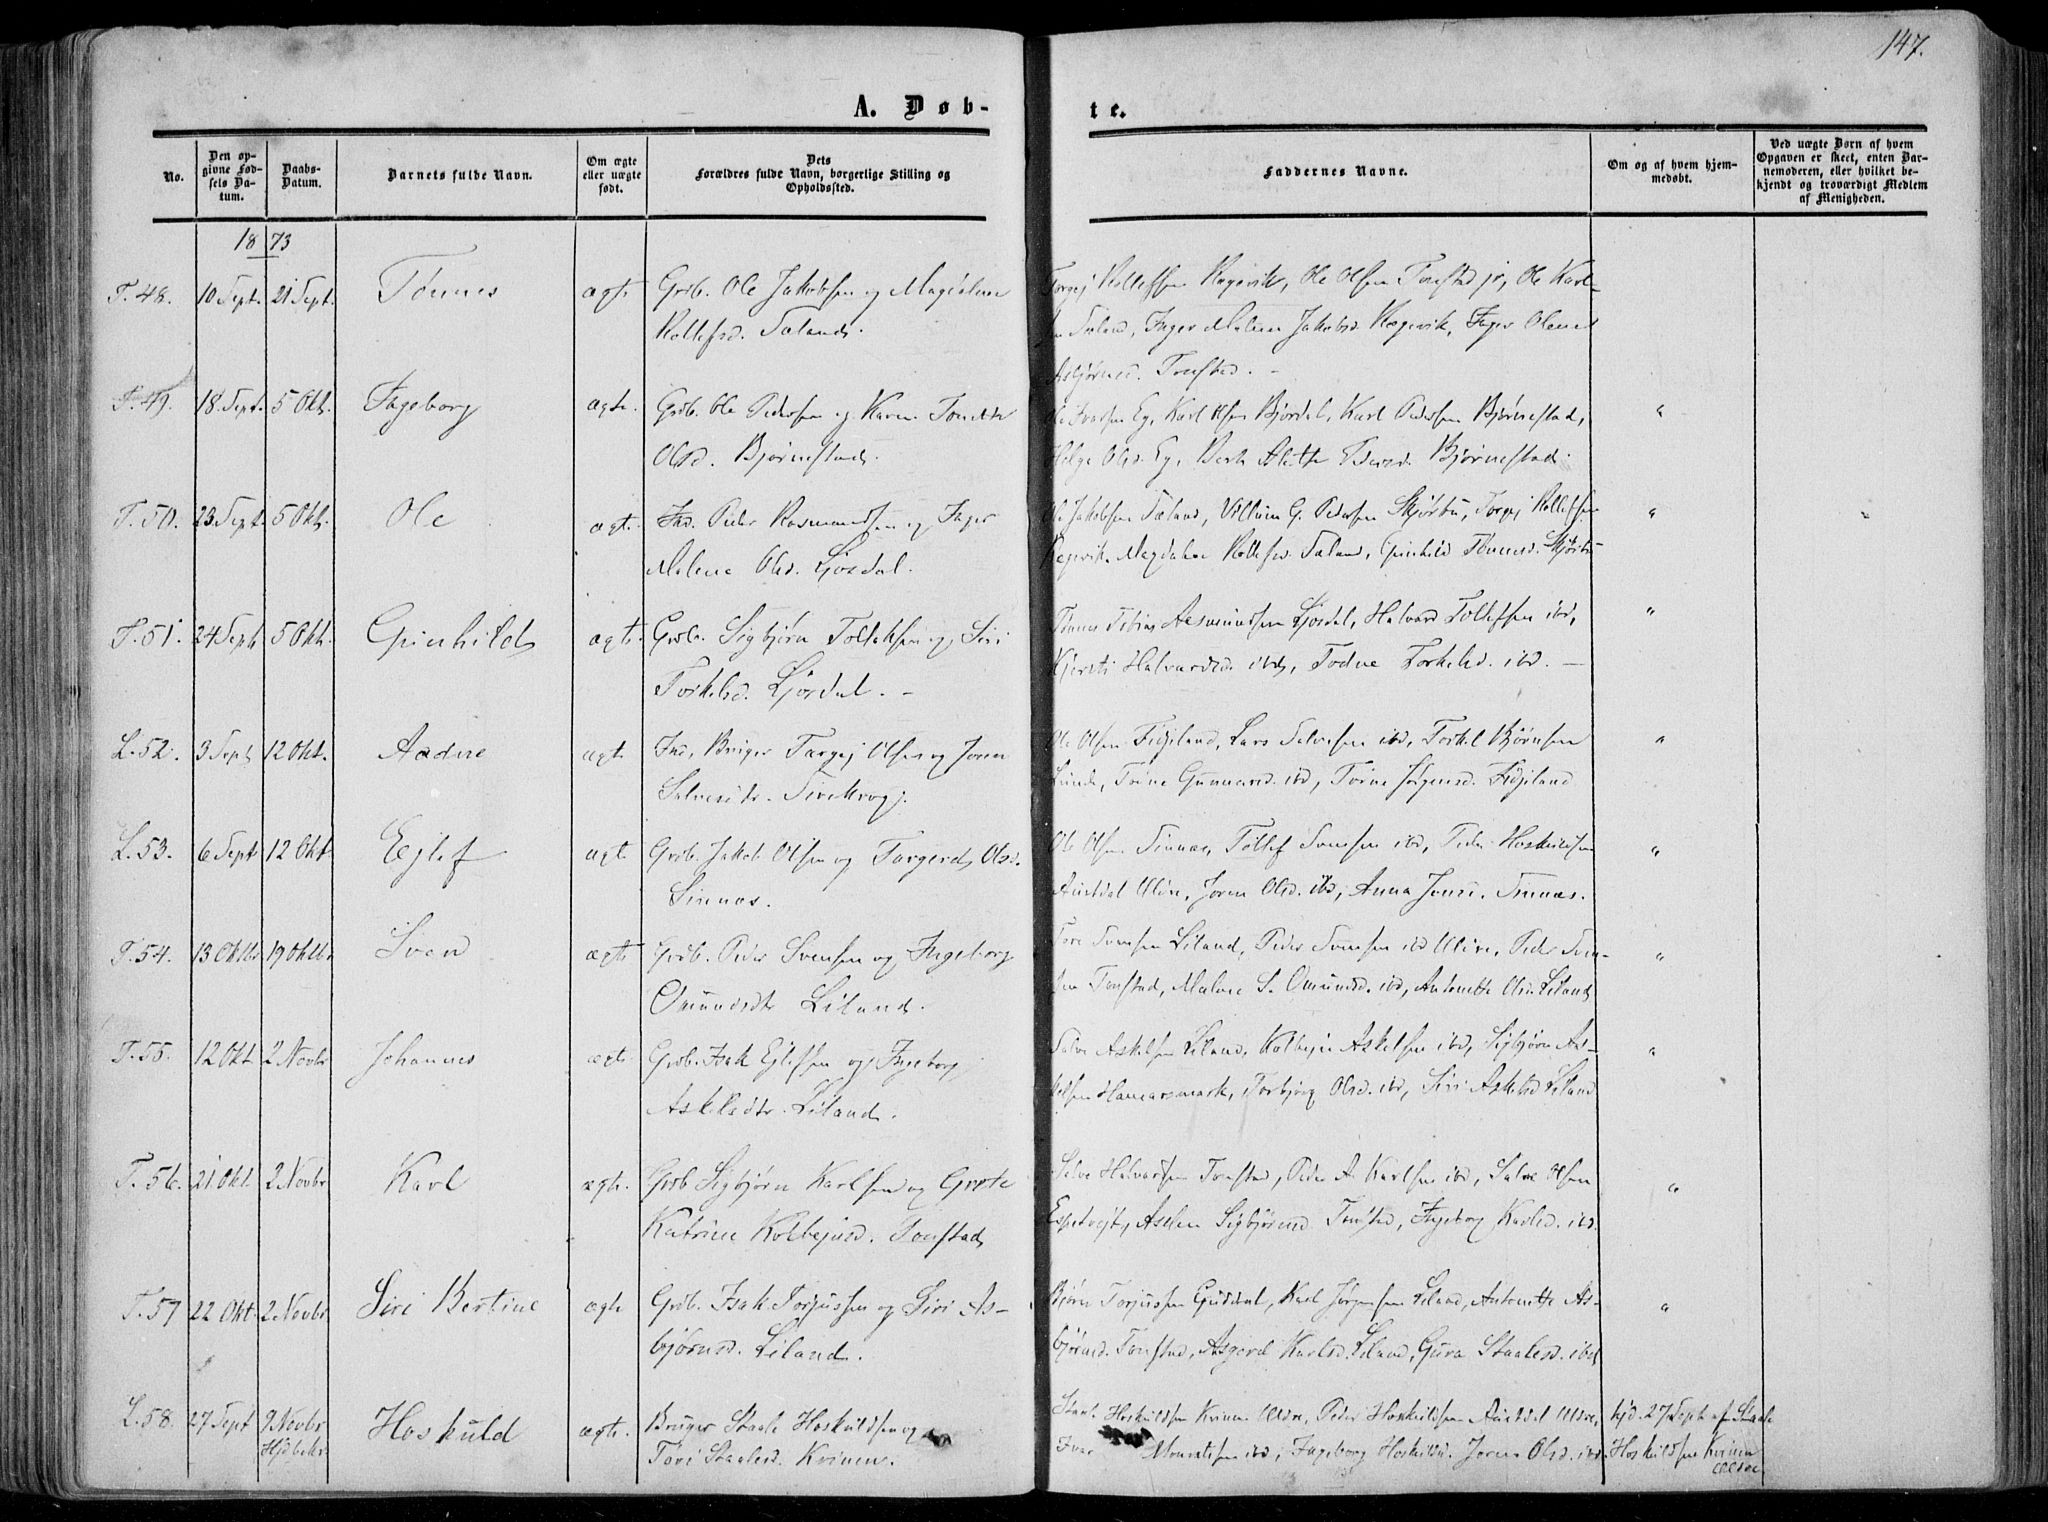 147.
A. Døb-
te.
No.
Den op-
givne Fød-
sels Da-
tum.
Daabs-
Datum.
Barnets fulde Navn.
Om ægte
eller uægte
født.
Dets
Forældres fulde Navn, borgerlige Stilling og
Opholdssted.
Faddernes Navne.
Om og af hvem hjem-
medøbt.
Ved uægte Børn af hvem
Opgaven er skeet, enten Bar-
nemoderen, eller hvilket be-
kjendt og troværdigt Medlem
af Menigheden.
1873
T. 48. 10 Sept. 21 Sept. Tønnes ægte Grdb. Ole Jakobsen og Magdalene
Rollefsd. Tæland.
Torgej Rollefsen Regevik, Ole Olsen Tonstad jr, Ole Karl-
sen Tæland, Inger Malene Jakobsd. Regevik, Inger Olene
Asbjørnsd. Tonstad. -
T. 49. 18 Sept. 5 Okt. Ingeborg ægte. Grdb. Ole Pedersen og Karen Tonette
Olsd. Bjørnestad.
Ole Ivarsen Eg, Karl Olsen Bjørdal, Karl Pedersen Bjørnestad, "
Helge Olsd. Eg, Berte Alette Pedersd. Bjørnestad.
T. 50. 23 Sept. 5 Okt. Ole ægte Ind. Peder Rasmundsen og Inger
Malene Olsd. Ljosdal.
Ole Jakobsen Tæland, Villum G. Pedersen Skjørbu, Torgej Rollefsen "
Regevik, Magdalene Rollefsd. Tæland, Gunhild Tønnesd. Skjørbu
T. 51. 24 Sept. 5 Okt. Gunhild ægte Grdb. Sigbjørn Tollaksen og Siri
Torkelsd. Ljosdal. -
Tønnes Tobias Aasmundsen Ljosdal, Halvard Tollefsen ibd, "
Kjersti Halvardsd. ibd, Todne Torkelsd. ibd. -
L. 52. 3 Sept 12 Okt. Aadne ægte Ind, Bruger Targej Olsen og Joren
Salvesdtr. Tirekrog.
Ole Olsen Fidjeland, Lars Salvesen ibd, Torkel Bjørnsen "
Lunde, Tone Gunnarsd. ibd, Tone Jørgensd. Fidjeland
L. 53. 6 Sept 12 Okt Ejlef ægte Grdb. Jakob Olsen og Torgerd Olsd.
Sinnes.
Ole Olsen Sinnes, Tollef Svensen ibd, Peder Hoskuldsen "
Austdal Udve, Joren Olsd. ibd, Anna Jonsd. Sinnes.
T. 54. 13 Oktbr 19 Oktbr Sven ægte Grdb. Peder Svensen og Ingeborg
Omundsdtr Liland.
Tore Svensen Liland, Peder Svensen ibd Udve, Peder Sven- "
sen Tonstad, Malene S. Omundsd. ibd, Antonette Olsd. Liland
T. 55. 12 Okt 2 Novbr Johannes ægte Grdb. Isak Ejlefsen og Ingeborg
Askelsdtr. Liland.
Salve Askelsen Liland, Kolbejn Askelsen ibd, Sigbjørn As- "
kelsen Hamarsmark, Torbjørg Olsd. ibd, Siri Askelsd Liland
T. 56. 21 Okt. 2 Novbr Karl ægte. Grdb Sigbjørn Karlsen og Grete
Katrine Kolbejnsd. Tonstad
Salve Halvardsen Tonstad, Peder A. Karlsen ibd, Salve Olsen "
Espetvejt, Aslene Sigbjørnsd Tonstad, Ingeborg Karlsd. ibd.
T. 57 22 Okt. 2 Novbr Siri Bertine ægte Grdb. Isak Torjussen og Siri As-
bjørnsd. Liland.
Bjørn Torjussen Guddal, Karl Jørgensen Liland, Antonette As- "
bjørnsd. Tonstad, Asgerd Karlsd. Liland, Guro Staalesd. ibd
L. 58. 27 Sept 9 Novbr
Hjdbekr Hoskuld ægte. Bruger Staale Hoskuldsen og
Tori Staalesd. Kvinen.
Staale Hoskuldsen Kvinen Udve, Peder Hoskuldsen Austdal Udve, hjd. 27 Sept. af Staale
Ivar Mouritsen ibd, Ingeborg Hoskuldsd. Joren Olsd. ibd. Hoskuldsen Kvinen
Udve.